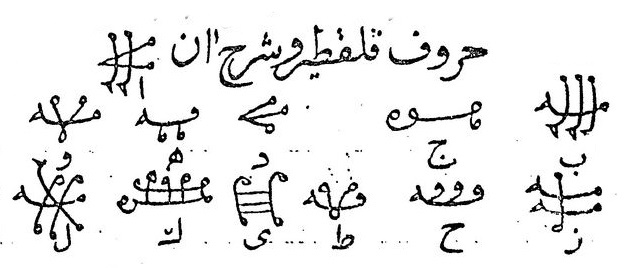 حروف قلفطير وشرح ان
ا
ب ج د ه و
ز ح ط ى ك ل